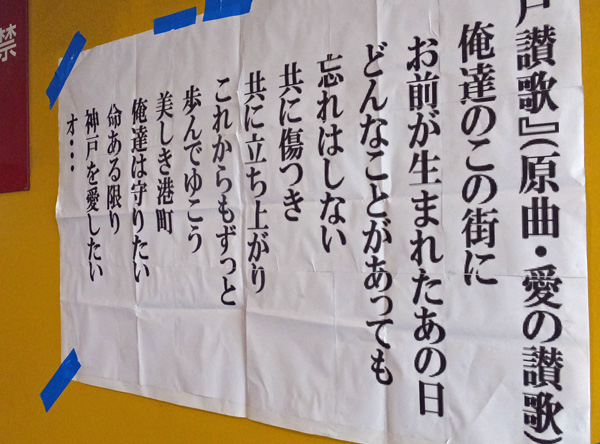 戸讃歌』(原曲・愛の讃歌)
俺達のこの街に
お前が生まれたあの日
どんなことがあっても
忘れはしない
共に傷つき
共に立ち上がり
これからもずっと
歩んでゆこう
美しき港町
俺達は守りたい
命ある限り
神戸を愛したい
オ・・・
禁